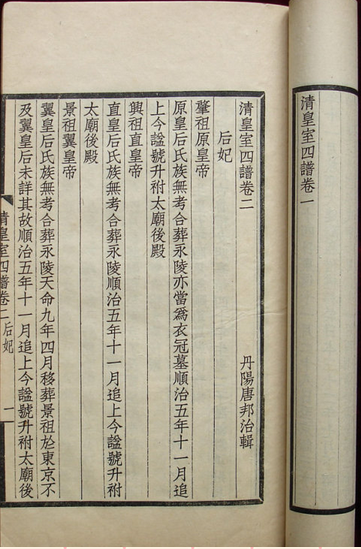 清皇室四譜卷一
清皇室四譜卷二
丹陽唐邦治輯
后妃
肇祖原皇帝
原皇后氏族無考合葬永陵亦當爲衣冠墓順治五年十一月追
上今諡號升祔太廟後殿
興祖直皇帝
直皇后氏族無考合葬永陵順治五年十一月追上今諡號升祔
太廟後殿
景祖翼皇帝
翼皇后氏族無考合葬永陵天命九年四月移葬景祖於東京不
及翼皇后未詳其故順治五年十一月追上今諡號升祔太廟後
清皇室四譜卷二 后妃 一